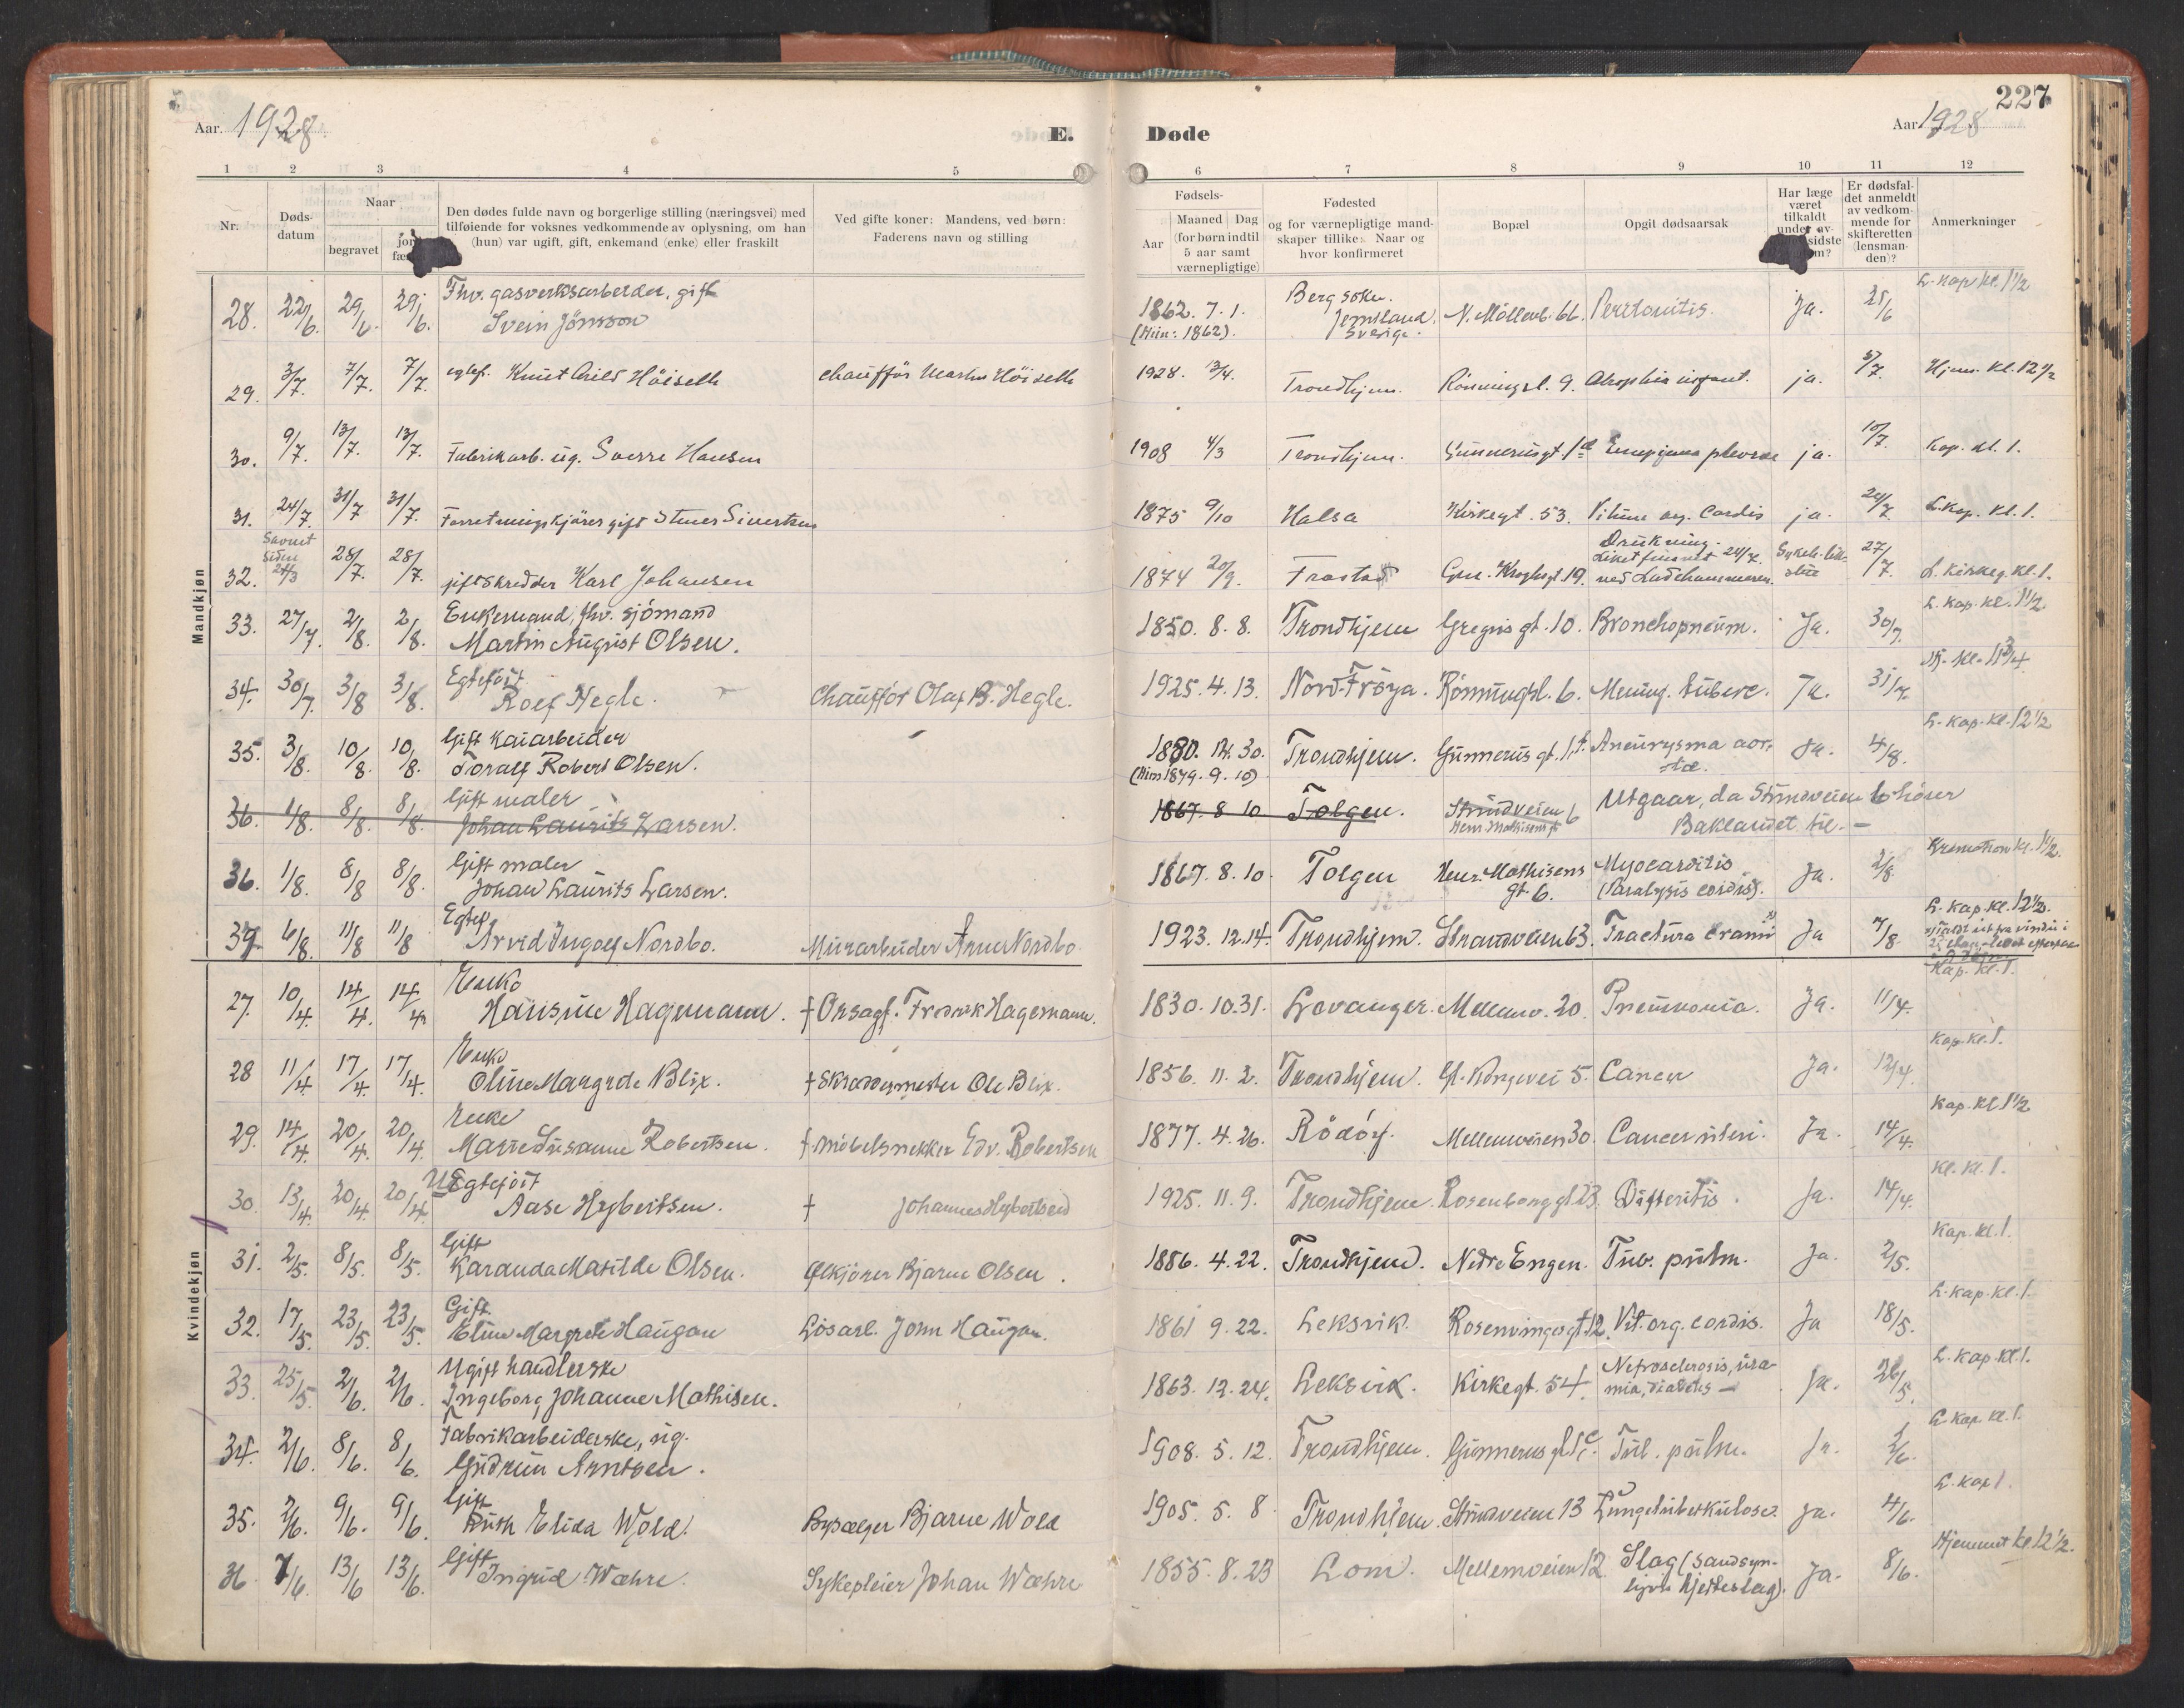 227
Aar. 1928.
E.
Døde
Aar 1928
1 2 3 4 5 6 7 8 9 10 11 12
Nr.
Døds-
datum
Naar
begravet
Den dødes fulde navn og borgerlige stilling (næringsvei) med
tilføiende for voksnes vedkommende av oplysning, om han
(hun) var ugift, gift, enkemand (enke) eller fraskilt
Ved gifte koner: Mandens, ved børn:
Faderens navn og stilling
Fødsels-
Aar
Maaned Dag
(for børn indtil
5 aar samt
værnepligtige)
Fødested
og for værnepligtige mand-
skaper tillike: Naar og
hvor konfirmeret
Bopæl
Opgit dødsaarsak
Har læge
været
tilkaldt
under av-
sidste
Er dødsfal-
det anmeldt
av vedkom-
mende for
skifteretten
(lensman-
den)?
Anmerkninger
Mandkjøn
28. 22/6. 29/6. 29/6. Fhv. gasverksarbeider, gift
Svein Jönsson
1862. 7. 1. Berg sokn.
Jemtland. Sverige.
(Min: 1862).
N. Möllenb. 66. Peretonitis. Ja. 25/6 L. kap kl. 1 1/2
29. 3/7. 7/7. 7/7. egtef. Knut Arild Höiseth chauffør Martin Höiseth 1928. 13/4. Trondhjem. Rönningsl. 9. Atrophia infant. ja. 5/7. Hjem. kl. 12 1/2
30. 9/7. 13/7. 13/7. Fabrikarb. ug. Sverre Hansen 1908 4/3 Trondhjem. Gunnerusgt. 1d Empyema pleurae ja. 10/7. Kap. kl. 1.
31. 24/7. 31/7 31/7. Forretningskjörer gift Stener Sivertsen 1875 9/10 Halsa Kirkegt. 53. Vitium org. Cordis ja. 24/7 L. kap. kl. 1.
Savnet
siden
24/3
32. 28/7. 28/7. gift skredder Karl Johansen 1874 20/9. Frosta Gen. Kroghsgt. 19. Drukning.
Liket funnet 24/7.
ved Ladehammeren. 27/7. L. kirkeg. kl. 1.
33. 27/7. 2/8. 2/8. Enkemand, fhv. sjömand
Martin August Olsen. 1850. 8. 8. Trondhjem Gregus gt. 10. Bronchopneum. Ja. 30/7. L. kap. kl. 1 1/2.
34. 30/7. 3/8 3/8. Egtefött
Rolf Hegle. Chauffør Olaf B. Hegle. 1925. 4. 13. Nord-Fröya. Rönningsl. 6. Mening. tuberc. Ja. 31/7. Hj. kl. 11 3/4.
35. 3/8. 10/8. 10/8. Gift kaiarbeider
Toralf Robert Olsen. 1880. 12. 30. Trondhjem. Gunnerus gt. 1 f. Aneurysma aor-
tae. Ja. 4/8. L. kap. kl. 12 1/2
(Min 1879. 9. 10)
36. 1/8. 8/8. 8/8. Gift maler
Johan Laurits Larsen. 1867. 8 10 Tolgen. Strindveien 6
Henr. Mathisens gt Utgaar, da Strindveien 6 hörer
Baklandet til. -
36. 1/8. 8/8 8/8. Gift maler
Johan Laurits Larsen. 1867. 8. 10. Tolgen Henr. Mathisens
gt. 6. Myocarditis
(Paralysis cordis). Ja. 2/8 Kremation kl. 1 1/2.
37. 6/8. 11/8 11/8 Egtef
Arvid Ingolf Nordbo. Murarbeider Arne Nordbo 1923. 12. 14. Trondhjem. Strandveien 63. Fractura cranii Ja 7/8. L. kap. kl. 12 1/2.
Kvindekjøn
27. 10/4. 14/4. 14/4 Enke
Hansine Hagemann. † Ovsagf. Fredrik Hagemann. 1830. 10. 31. Levanger. Mellemv. 20. Pneumonia. Ja. 11/4. Kap. kl. 1.
28 11/4. 17/4. 17/4. Enke
Oline Margrete Blix. † Skreddermester Ole Blix. 1856. 11. 2. Trondhjem. Gl. Kongevei 5. Cancer Ja. 12/4. Kap. kl. 1.
29. 14/4. 20/4. 20/4. Enke
Marie Susanne Robertsen. † Möbelsnekker Edv. Robertsen 1877. 4. 26. Rödöy. Mellemveien 30. Cancer uteri. Ja. 14/4. Kap. kl 1 1/2
30. 13/4. 20/4. 20/4. U Egtefött
Aase Hybertsen. † Johannes Hybertsen 1925. 11. 9. Trondhjem. Rosenborg gt. 23. Difteritis. Ja. 14/4. kl. kl. 1.
31. 2/5. 8/5. 8/5. Gift
Karanda Matilde Olsen. Ölkjörer Bjarne Olsen. 1886. 4. 22. Trondhjem. Nedre Engen. Tub. pulm. Ja. 2/5. Kap. kl. 1.
32. 17/5. 23/5. 23/5. Gift.
Eline Margrete Haugan Lösarb. John Haugan. 1861 9. 22. Leksvik. Rosenvinges gt. 12. Vit. org. cordis. Ja 18/5. L. kap. kl. 1.
33. 25/5. 2/6. 2/6. Ugift handlerske
Ingeborg Johanne Mathisen. 1863. 12. 24. Leksvik. Kirkegt. 54. Nefrosclerosis, ura-
mia, diabetes - Ja. 26/5. L. kap. kl. 1.
34. 2/6. 8/6. 8/6. Fabrikarbeiderske, ug.
Gudrun Arntsen. 1908. 5. 12. Trondhjem. Gunnerus gt. 1c. Tub. pulm. Ja. 2/6. L. kap. kl. 1.
35. 2/6. 9/6. 9/6. Gift
Ruth Elida Wold. Bysælger Bjarne Wold 1905. 5. 8 Trondhjem. Strindveien 13 Lungetuberkulose. Ja. 4/6. L. kap 1.
36 7/6. 13/6 13/6. Gift
Ingrid Wæhre. Sykepleier Johan Wæhre 1855. 8. 23 Lom. Mellemveien 12. Slag (sandsyn-
ligvis hjerteslag). Ja. 8/6. Hjemmet kl 12 1/2.